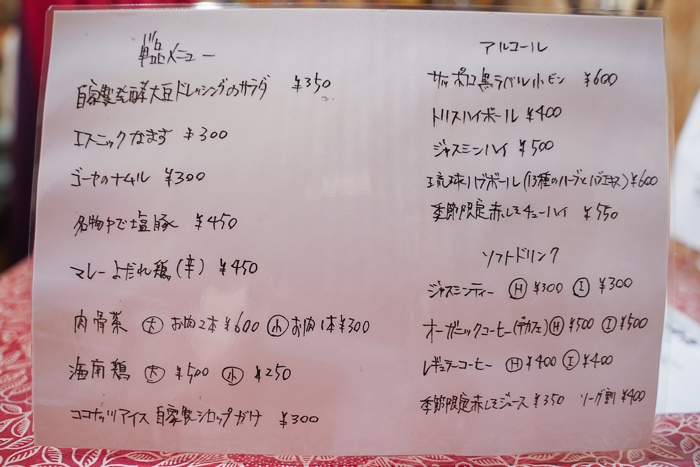 単品メニュー
自家製発酵大豆ドレッシングのサラダ ¥350
エスニックなます ¥300
ゴーヤのナムル ¥300
名物ゆで塩豚 ¥450
マレーよだれ鶏(辛) ¥450
肉骨茶 大 お肉2本¥600 小 お肉1本¥300
海南鶏 大 ¥500 小 ¥250
ココナッツアイス 自家製シロップがけ ¥300
アルコール
サッポロ黒ラベル小ビン ¥600
トリスハイボール ¥400
ジャスミンハイ ¥500
琉球ハブボール(13種のハーブとハブエキス)¥600
季節限定赤しそチューハイ ¥550
ソフトドリンク
ジャスミンティー H ¥300 I ¥300
オーガニックコーヒー(デカフェ) H ¥500 I ¥500
レギュラーコーヒー H ¥400 I ¥400
季節限定赤しそジュース ¥350 ソーダ割 ¥400